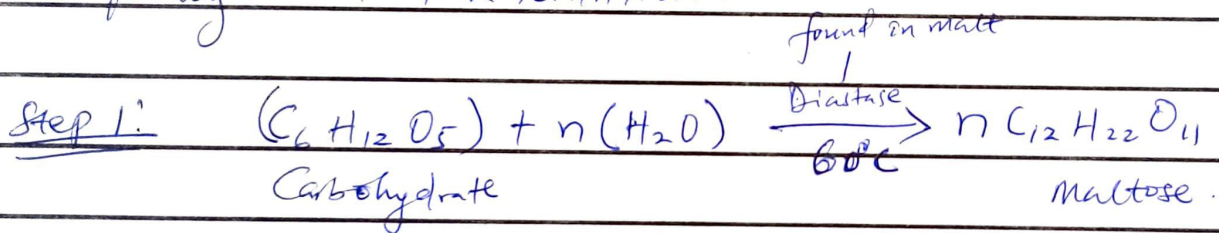 found in malt
Step 1: (C₆H₁₂O₅) + n(H₂O) Diastase → n C₁₂H₂₂O₁₁
60°C
Carbohydrate Maltose.